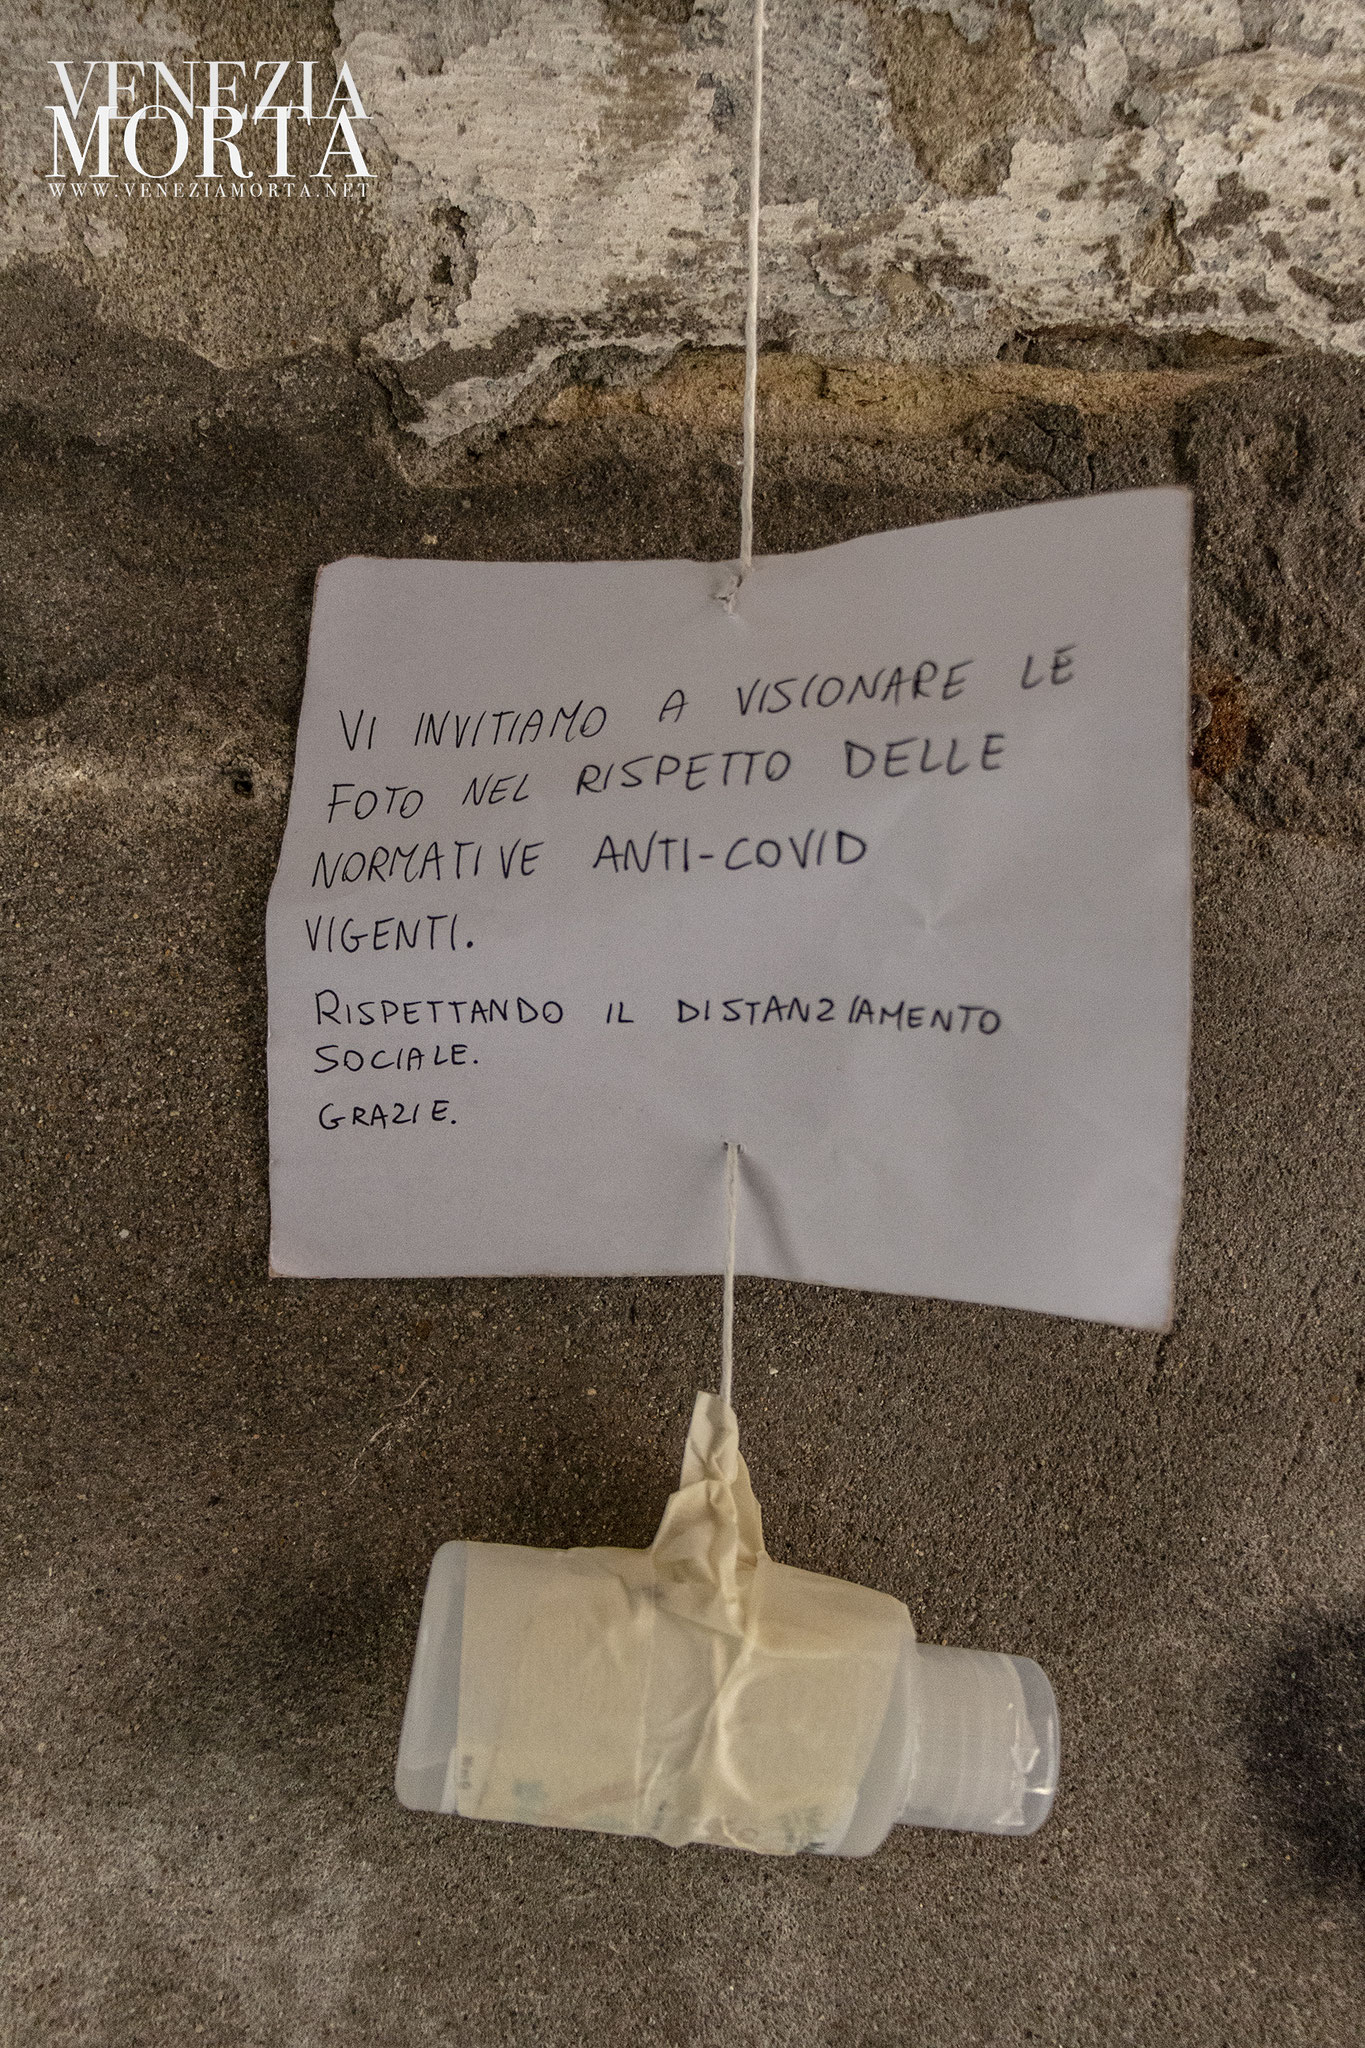 VENEZIA
MORTA
WWW.VENEZIAMORTA.NET
VI INVITIAMO A VISIONARE LE
FOTO NEL RISPETTO DELLE
NORMATIVE ANTI-COVID
VIGENTI.
RISPETTANDO IL DISTANZIAMENTO
SOCIALE.
GRAZIE.